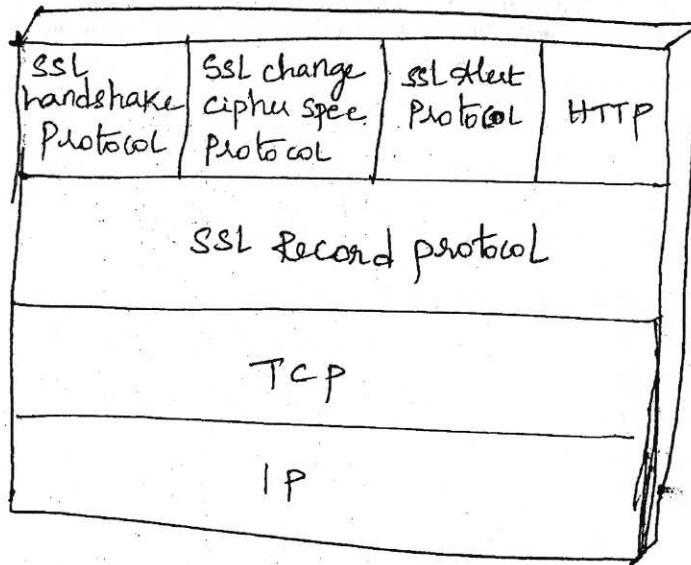 SSL
handshake
Protocol
SSL change
cipher spec.
Protocol
SSL Alert
Protocol
HTTP
SSL Record protocol
TCP
IP